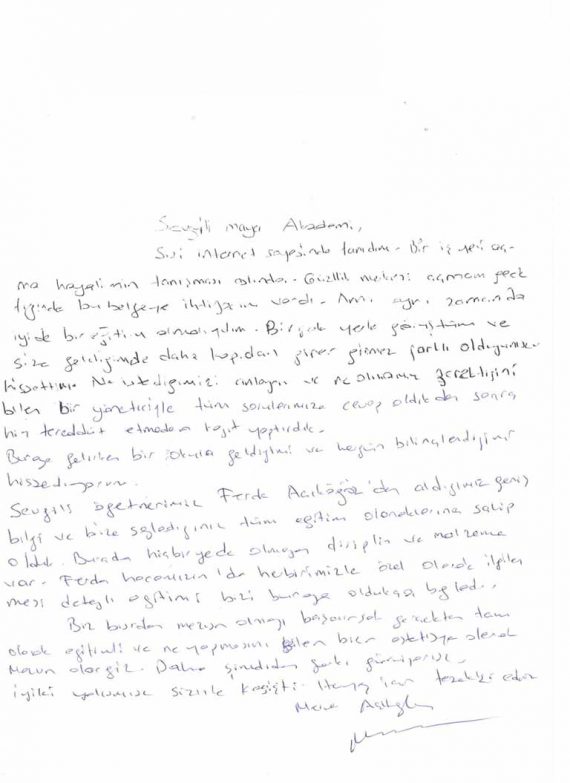 Sevgili maya Akademi,
Sizi internet sayesinde tanıdım. Bir iş yeri aç-
ma hayalimin tanışması aslında. Güzellik merkezi açmam gerek
tiğinde bu belgeye ihtiyacım vardı. Ama aynı zamanda
iyide bir eğitim almalıydım. Birçok yerle görüştüm ve
size geldiğimde daha kapıdan girer girmez farklı olduğunuzu
hissettim. Ne istediğimizi anlayan ve ne olmamız gerektiğini
bilen bir yöneticiyle tüm sorularımıza cevap aldıktan sonra
hiç tereddüt etmeden kayıt yaptırdık.
Buraya gelirken bir okula geldiğimi ve hergün bilinçlendiğimi
hissediyorum.
Sevgili öğetmenimiz Ferda Açıkgöz'den aldığımız geniş
bilgi ve bize sağladığınız tüm eğitim olanaklarına sahip
olduk. Burada hiçbiryede olmayan disiplin ve malzeme
var. Ferda hocamızın'da herbirimizle özel olarak ilgilen
mesi detaylı eğitimi bizi buraya oldukça bağladı.
Biz burdan mezun olmayı başarırsak gerçekten tam
olarak eğitimli ve ne yapmasını bilen birer estetisyen olarak
mezun olacağız. Daha şimdiden farkı görüyoruz.
İyiki yolumuz sizinle kesişti. Herşey için teşekkür ederiz